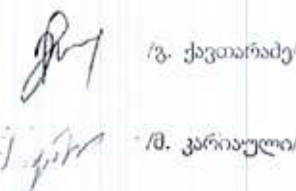 /გ. ქავთარაძე/
/მ. კარიაული/